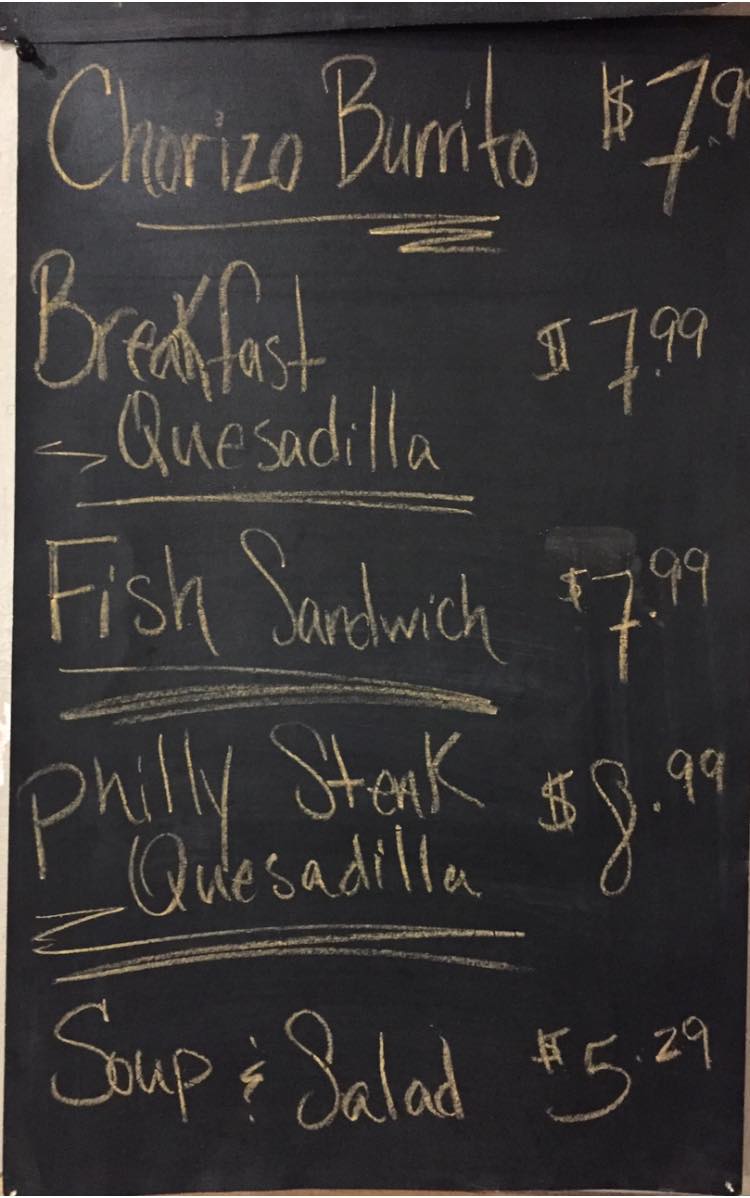 Chorizo Burrito $7.99
Breakfast
Quesadilla $7.99
Fish Sandwich $7.99
Philly Steak $8.99
Quesadilla
Soup & Salad $5.29